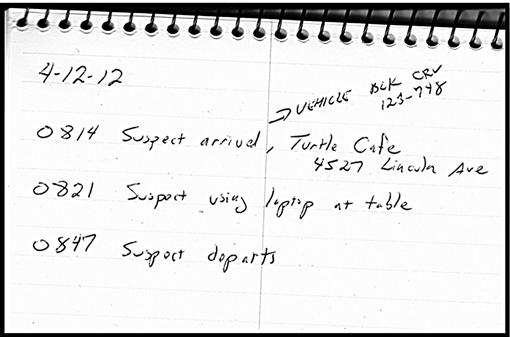 4-12-12
→ VEHICLE BLK CRV
123-748
0814 Suspect arrival, Turtle Cafe
4527 Lincoln Ave
0821 Suspect using laptop at table
0847 Suspect departs